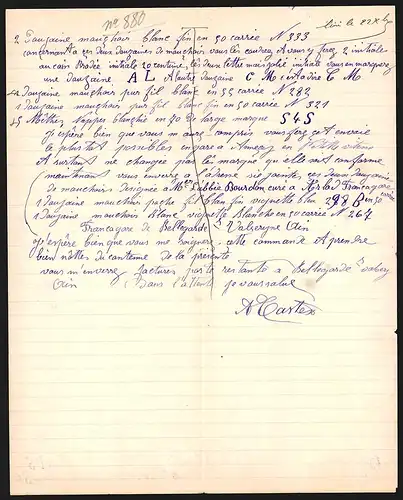 n° 880
2 Douzaine mouchoir blanc fin en 50 carrée N 333
concernant a ces deux douzaines de mouchoir vous les coudrez, et vous y ferez 2 initiale
au coin Brodée initiale 20 centime, les deux lettre mais joliè initiale vous en marquerez
une Douzaine A L A l'autre Douzaine C M
Douzaine mouchoir pur fil blanc en 55 carrée N 282
1 douzaine mouchoir pur fil blanc fin en 50 carrée N 321
45 Mêttres Nappes blanche en 70 de large marque S4S
J'espère bien que vous m'aurez compris vous ferez cet envoie
le plus tot possibles en gare a en petite vitesse
A surtout ne changée pas les marque qu'elle soit conforme
maintenant vous enverrez a l'adresse deux Douzaine
de mouchoir designée a Mer l'abbée Bourdon curé a
1 douzaine mouchoir poche fil blanc fin vignette bleu 298 B en 50
1 douzaine mouchoir blanc vignette blanche en 50 carrée N 264
de Bellegarde Valserine Ain
J'espère bien que vous me soignerez cette commande A prendre
bien nottes du contenue de la présente
vous m'enverrez factures poste restante a Bellegarde
Ain Dans l'attente je vous salue
A Cartex